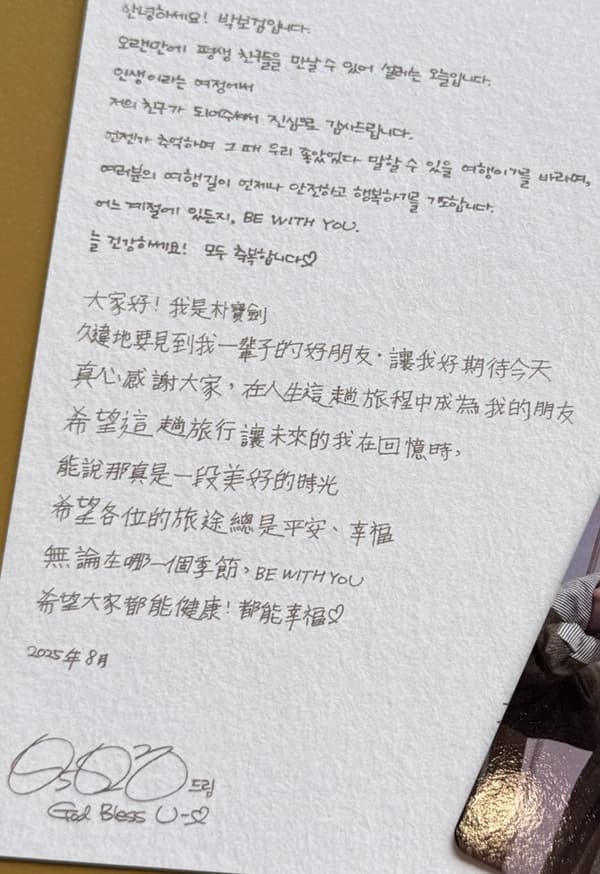 안녕하세요! 박보검입니다.
오랜만에 평생 친구들을 만날 수 있어 설레는 오늘입니다.
인생이라는 여정에서
저의 친구가 되어주셔서 진심으로 감사드립니다.
언젠가 추억하며 그 때 우리 좋았었다 말할 수 있을 여행이기를 바라며,
여러분의 여행길이 언제나 안전하고 행복하기를 기도합니다.
어느 계절에 있든지, BE WITH YOU.
늘 건강하세요! 모두 축복합니다♡
大家好!我是朴寶劍
久違地要見到我一輩子的好朋友,讓我好期待今天
真心感謝大家,在人生這趟旅程中成為我的朋友
希望這趟旅行讓未來的我在回憶時,
能說那真是一段美好的時光
希望各位的旅途總是平安、幸福
無論在哪一個季節,BE WITH YOU
希望大家都能健康!都能幸福♡
2025年8月
드림
God Bless U-♡